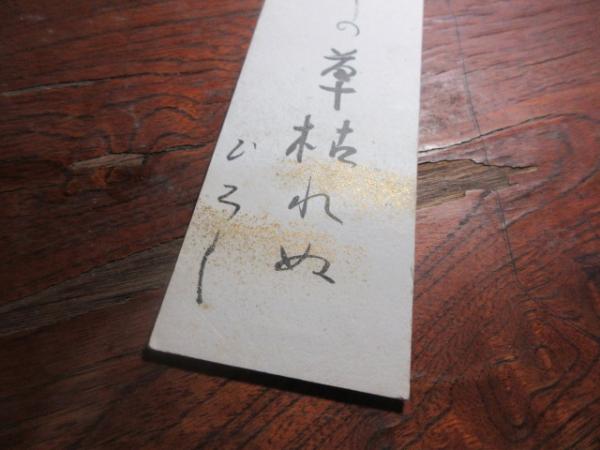 の草枯れぬ
ひろし